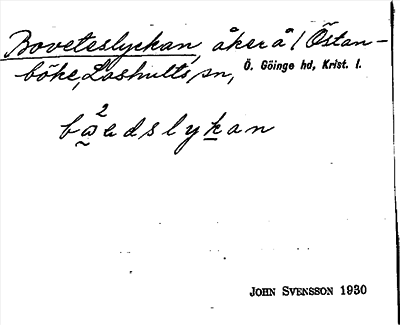 Boveteslyckan, åker å / Östan-
böke, Loshults sn, Ö. Göinge hd, Krist. l.
JOHN SVENSSON 1930